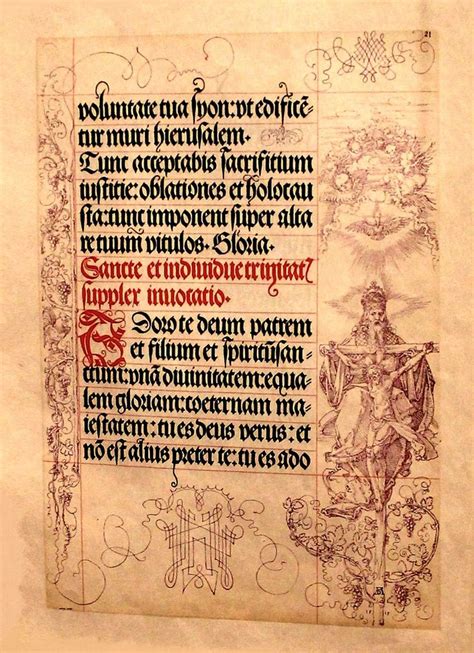 21
voluntate tua syon: vt edificē-
tur muri hierusalem.
Tunc acceptabis sacrifitium
iustitie: oblationes et holocau
sta: tunc imponent super alta
re tuum vitulos. Gloria.
Sancte et indiuidue trinitatꝭ
supplex inuocatio.
Adoro te deum patrem
et filium et spiritūsan-
ctum: vnā diuinitatem: equa-
lem gloriam: coeternam ma-
iestatem: tu es deus verus: et
nō est alius preter te: tu es ado